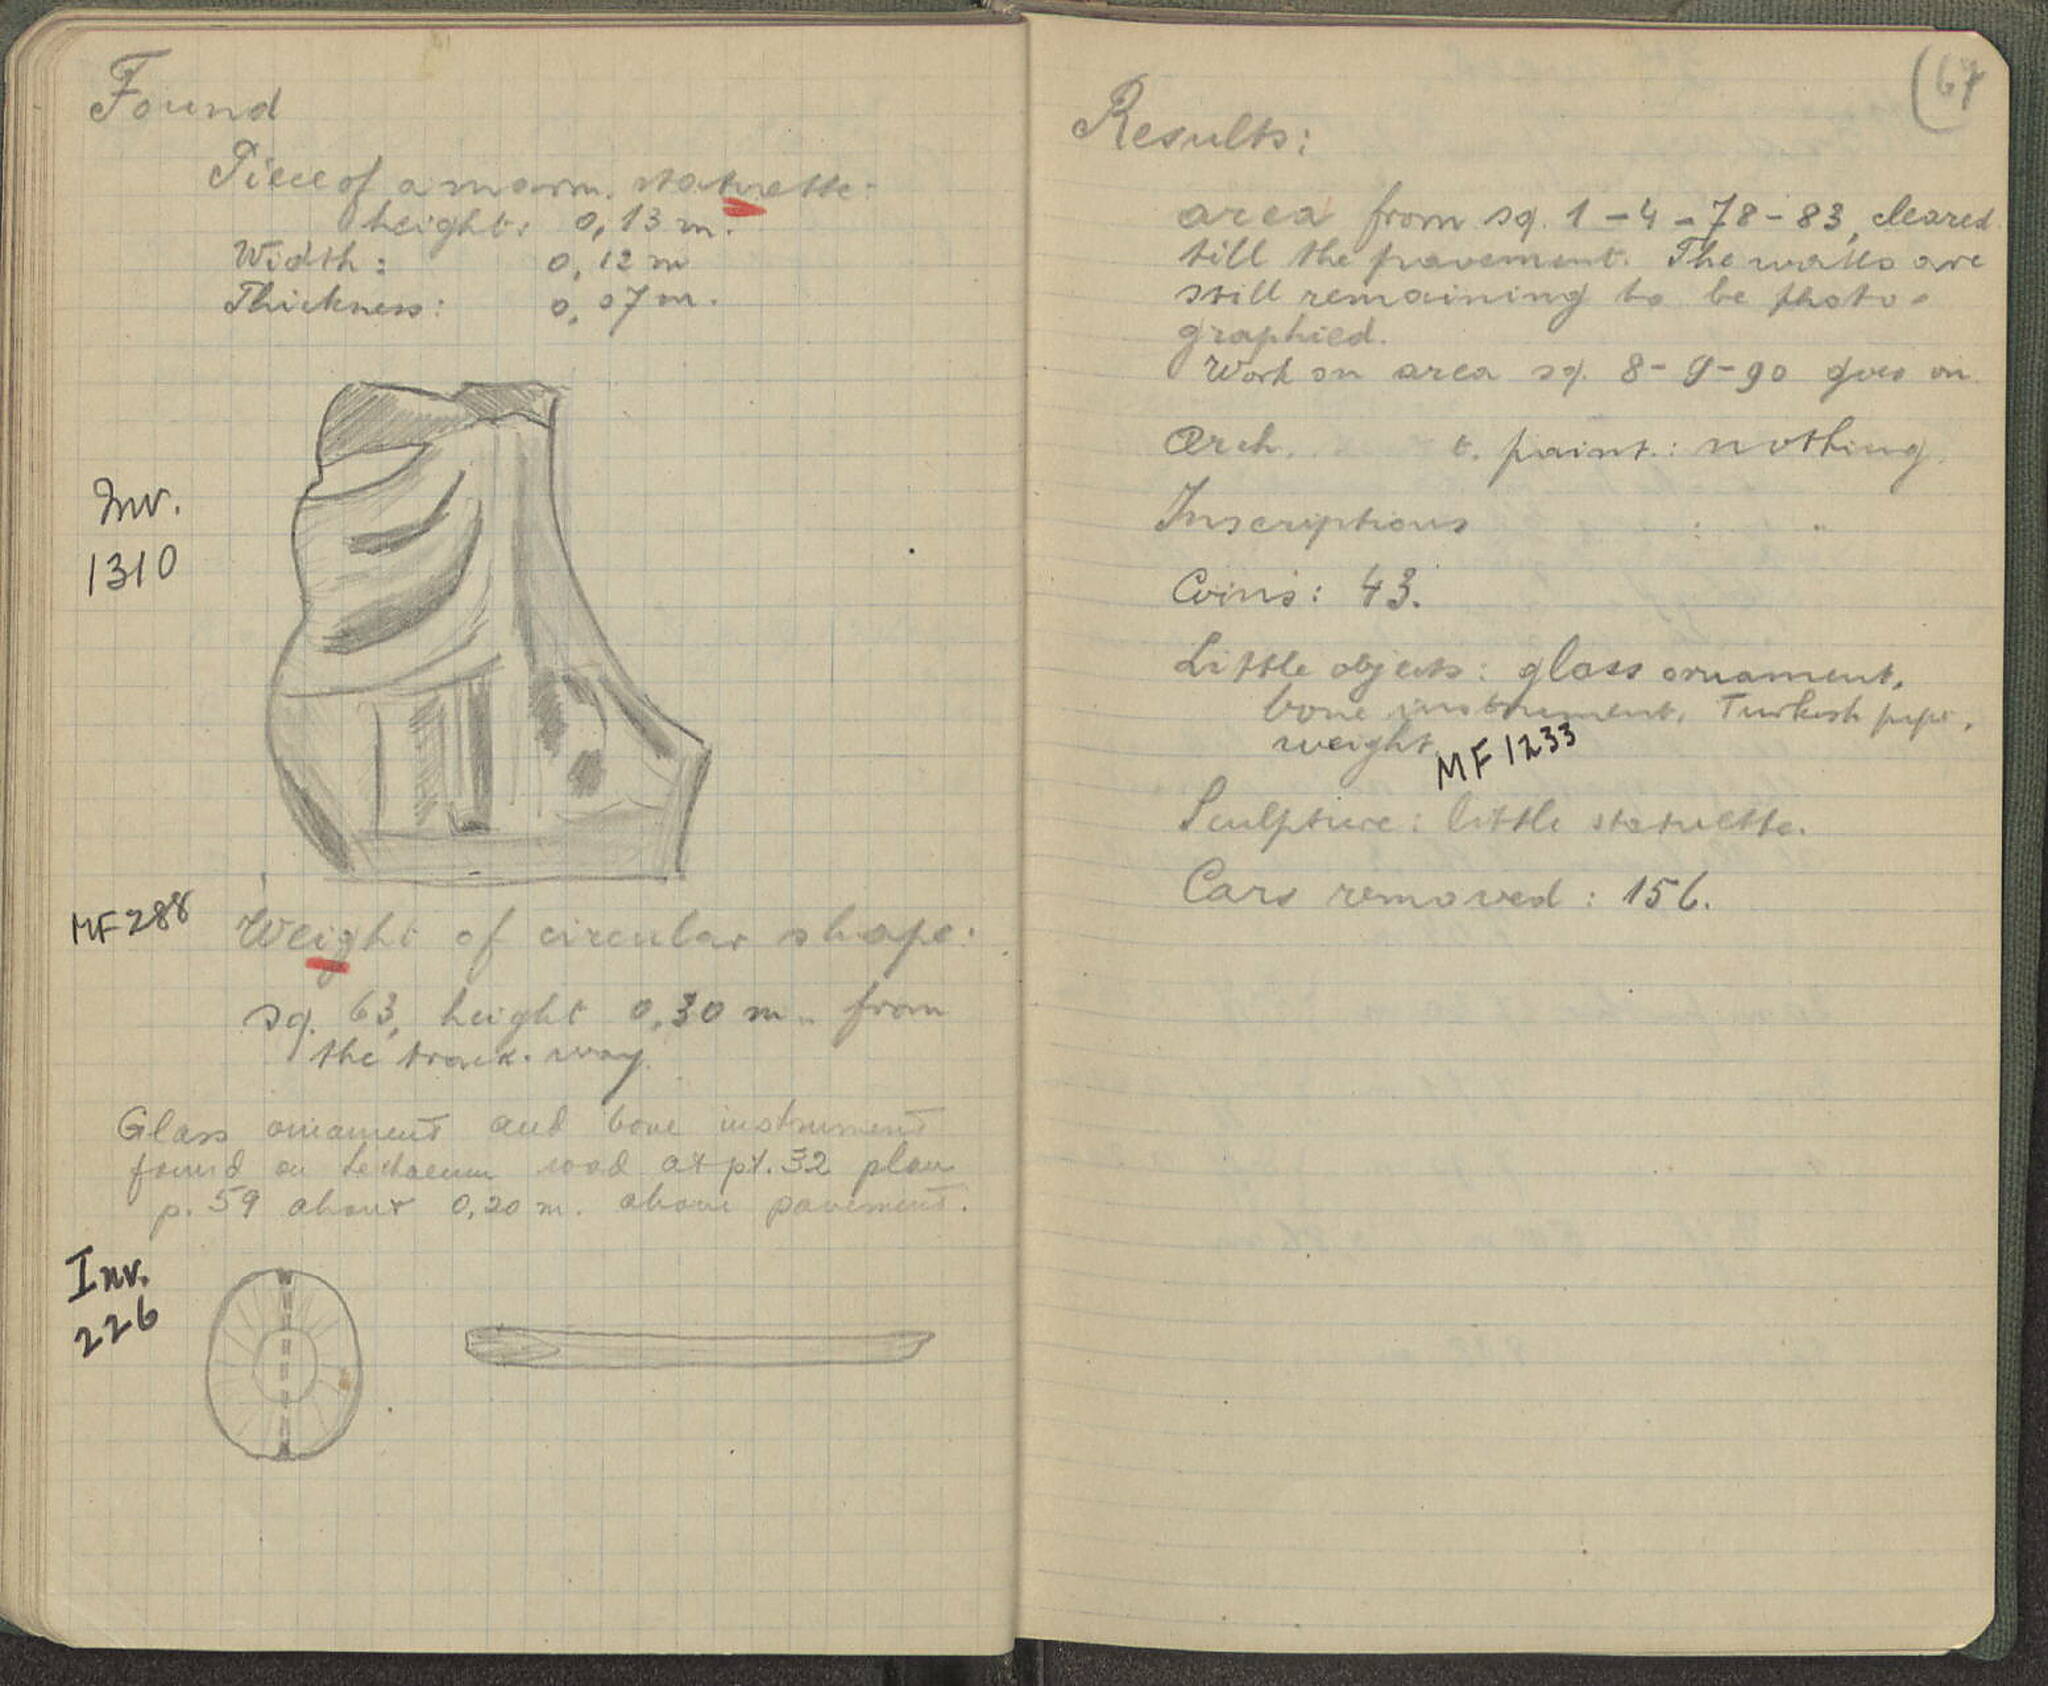 Found
Piece of a marm. statuette:
height: 0,13 m.
Width: 0,12 m
Thickness: 0,07 m.
Inv.
1310
MF 288
Weight of circular shape:
sq. 63, height 0,30 m. from
the track-way.
Glass ornament and bone instrument
found on Lechaeum road at pt. 32 plan
p. 59 about 0,20 m. above pavement.
Inv.
226
67
Results:
area from sq. 1-4-78-83, cleared
till the pavement. The walls are
still remaining to be photo-
graphied.
Work on area sq. 8-9-90 goes on
Arch. t. paint.: nothing
Inscriptions : "
Coins: 43.
Little objects: glass ornament,
bone instrument, Turkish pipe,
weight
MF 1233
Sculpture: little statuette.
Cars removed: 156.